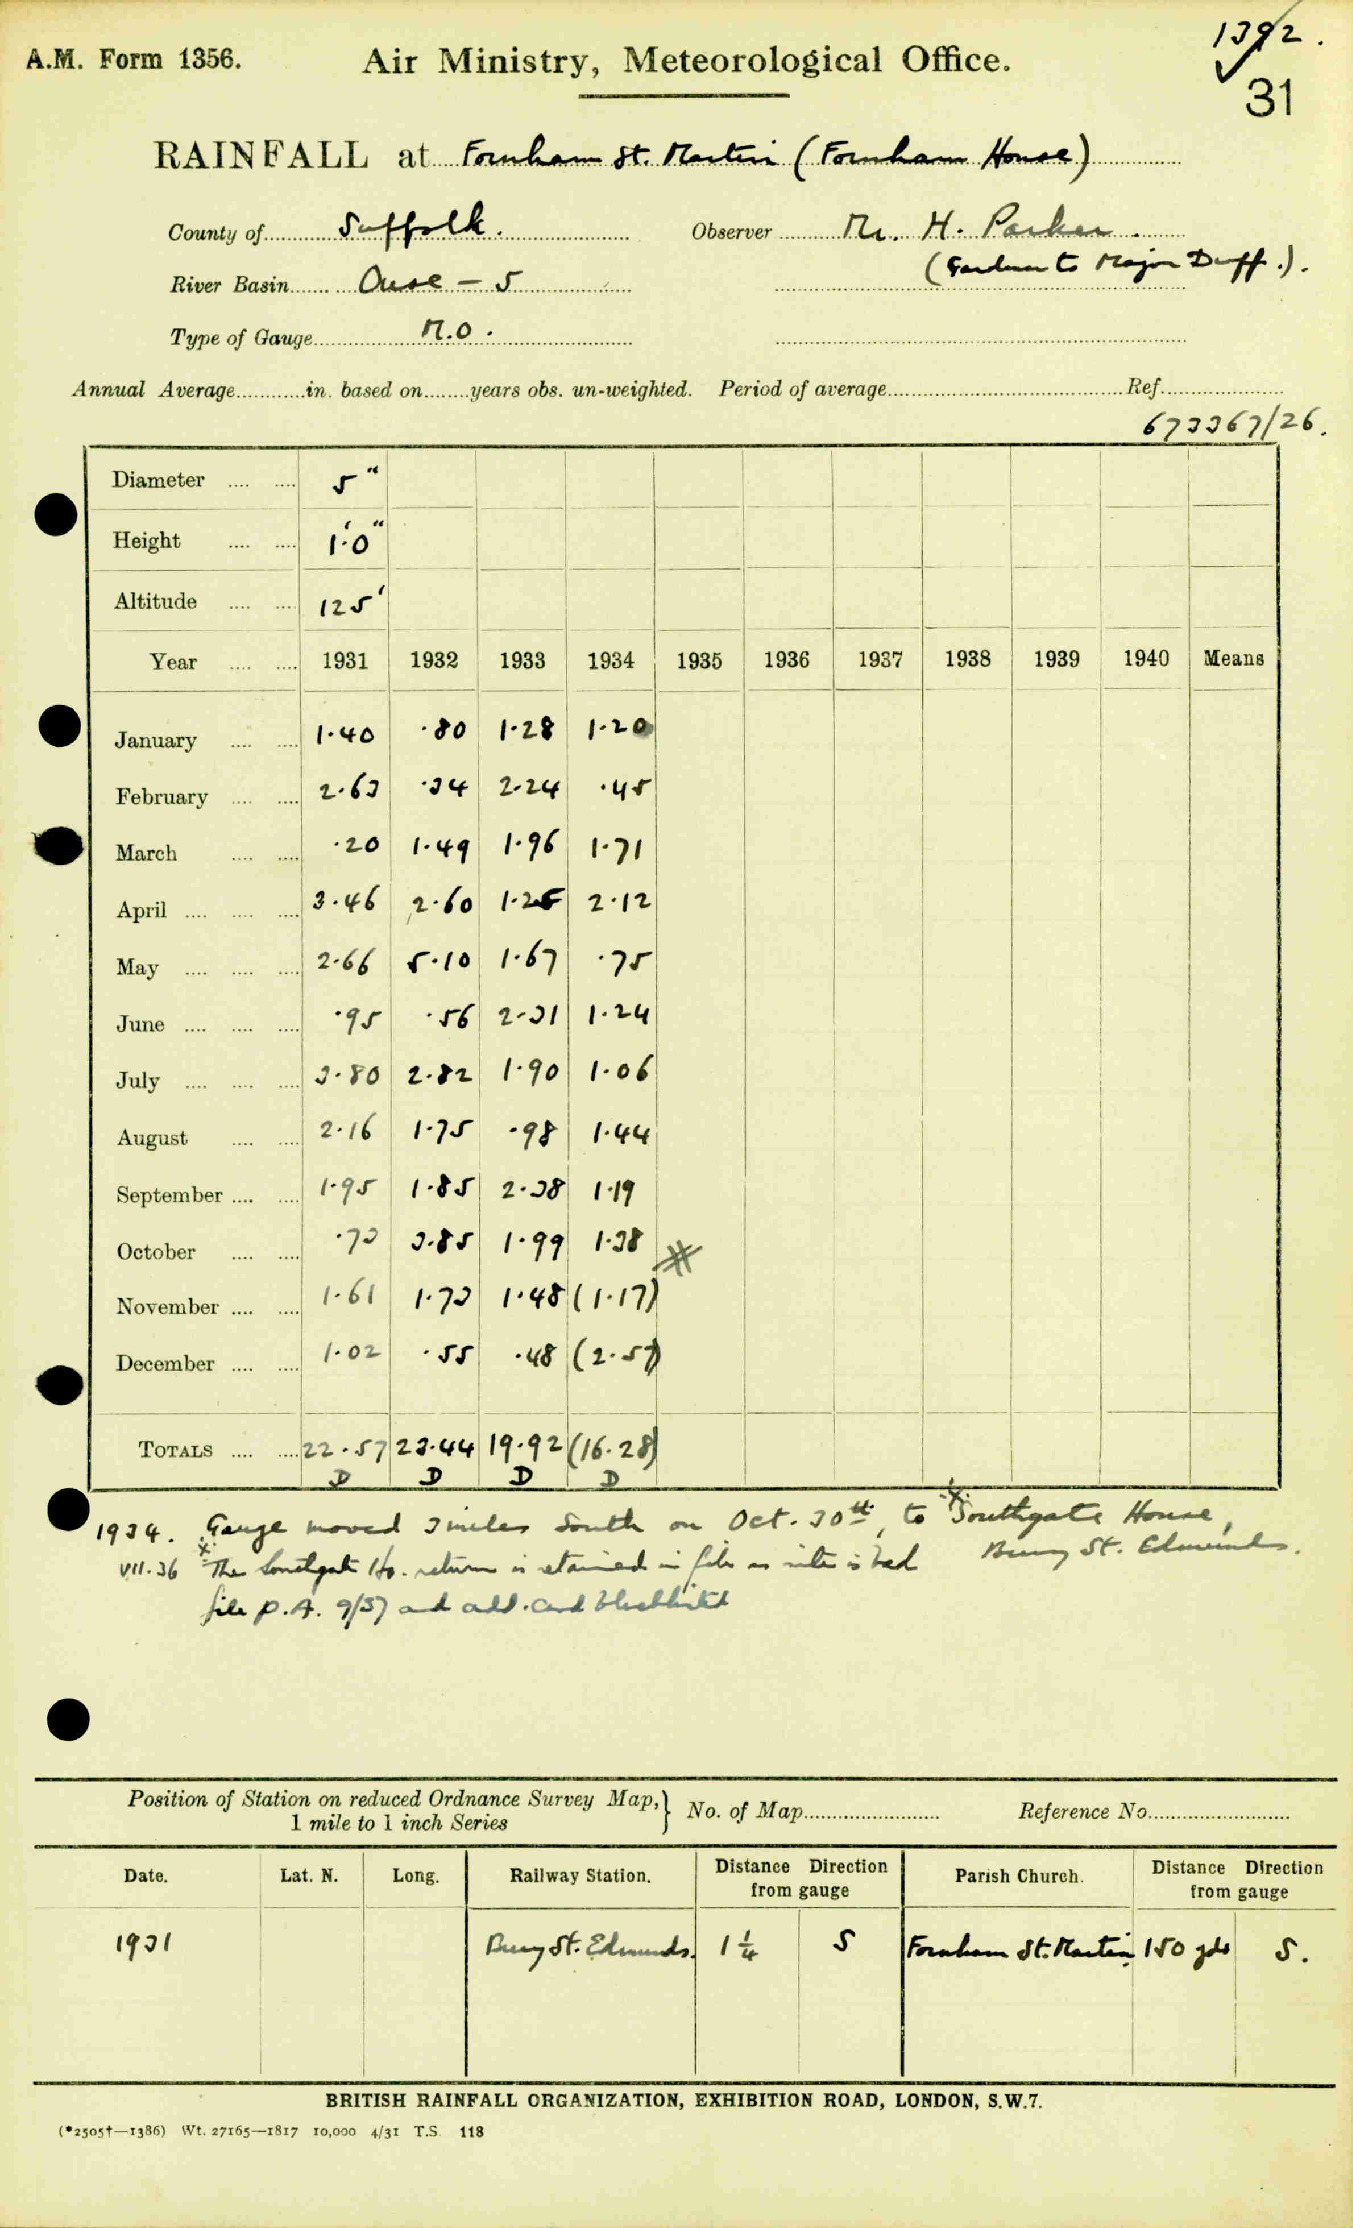 1392.
31
A.M. Form 1356.
Air Ministry, Meteorological Office.
RAINFALL at Fornham St. Martin (Fornham House)
County of Suffolk. Observer Mr. H. Parker.
(Gardener to Major Duff.).
River Basin Ouse – 5
Type of Gauge M.O.
Annual Average in. based on years obs. un-weighted. Period of average Ref.
673367/26.
Diameter 5"
Height 1'.0"
Altitude 125'
Year 1931 1932 1933 1934 1935 1936 1937 1938 1939 1940 Means
January 1.40 .80 1.28 1.20
February 2.63 .34 2.24 .45
March .20 1.49 1.96 1.71
April 3.46 2.60 1.25 2.12
May 2.66 5.10 1.67 .75
June .95 .56 2.31 1.24
July 3.80 2.82 1.90 1.06
August 2.16 1.75 .98 1.44
September 1.95 1.85 2.38 1.19
October .73 3.85 1.99 1.38
November 1.61 1.73 1.48 (1.17)
December 1.02 .55 .48 (2.57)
TOTALS 22.57 23.44 19.92 (16.28)
D D D D
1934. Gauge moved 3 miles South on Oct. 30th, to Southgate House,
Bury St. Edmunds.
VII.36 The Southgate Ho. return is retained in file as site is bad
file P.A. 9/37 and add. card
Position of Station on reduced Ordnance Survey Map, } No. of Map Reference No.
1 mile to 1 inch Series
Date. Lat. N. Long. Railway Station. Distance Direction from gauge Parish Church. Distance Direction from gauge
1931 Bury St. Edmunds. 1 1/4 S Fornham St. Martin 150 yds S.
BRITISH RAINFALL ORGANIZATION, EXHIBITION ROAD, LONDON, S.W.7.
(*2505†—1386) Wt. 27165—1817 10,000 4/31 T.S. 118